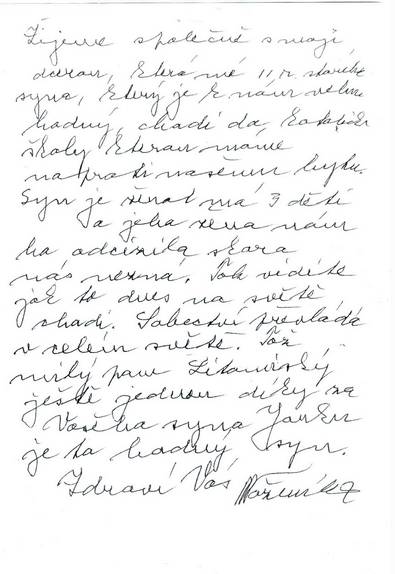 Žijeme společně s mojí
dcerou, která má 11,r. starého
syna, který je k nám velmi
hodný, chodí do
školy kterou máme
naproti našemu bytu.
Syn je ženat má 3 děti
a jeho žena nám
ho odcizila skoro
nás nezna. Tak vidíte
jak to dnes na světě
chodí. Sobectví převládá
v celém světě. Tož
milý pane Litanivský
ještě jednou díky za
Vašeho syna
je to hodný syn.
Zdraví Vás